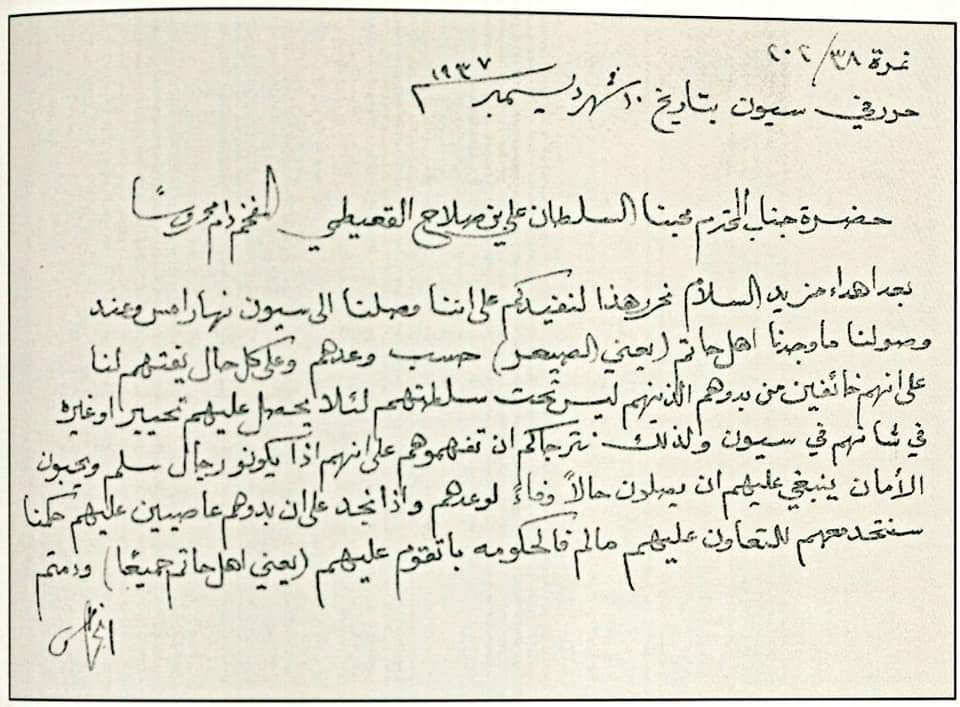 نمرة ٢٠٢/٣٨
حرر في سيون بتاريخ ١٠ في شهر ديسمبر ١٩٣٧ م
حضرة جناب المحترم محبنا السلطان علي بن صلاح القعيطي المفخم دام محروسًا
بعد اهداء مزيد السلام نحرر هذا لنفيدكم على اننا وصلنا الى سيون نهار امس وعند
وصولنا ما وجدنا اهل حاتم (يعني الصيعر) حسب وعدهم وعلى كل حال يفتهم لنا
على انهم خائفين من بدوهم الذينهم ليس تحت سلطتهم لئلا يحصل عليهم تحيير او غيره
في شانهم في سيون ولذلك نترجاكم ان تفهموهم على انهم اذا يكونو رجال سلم ويحبون
الأمان ينبغي عليهم ان يصلون حالاً وفاءً لوعدهم واذا نجد على ان بدوهم عاصيين عليهم حكمنا
سنتحد معهم للتعاون عليهم مالم فالحكومه باتقوم عليهم (يعني اهل حاتم جميعًا) ودمتم